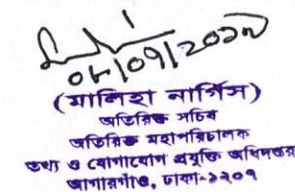 ০৮/০৭/২০১৯
(মালিহা নার্গিস)
অতিরিক্ত সচিব
অতিরিক্ত মহাপরিচালক
তথ্য ও যোগাযোগ প্রযুক্তি অধিদপ্তর
আগারগাঁও, ঢাকা-১২০৭